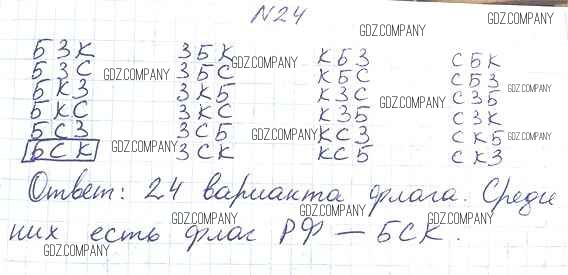 №24
БЗК ЗБК КБЗ СБК
БЗС ЗБС КБС СБЗ
БКЗ ЗКБ КЗС СЗБ
БКС ЗКС КЗБ СЗК
БСЗ ЗСБ КСЗ СКБ
БСК ЗСК КСБ СКЗ
Ответ: 24 варианта флага. Среди
них есть флаг РФ — БСК.
GDZ.COMPANY
GDZ.COMPANY
GDZ.COMPANY
GDZ.COMPANY
GDZ.COMPANY
GDZ.COMPANY
GDZ.COMPANY
GDZ.COMPANY
GDZ.COMPANY
GDZ.COMPANY
GDZ.COMPANY
GDZ.COMPANY
GDZ.COMPANY
GDZ.COMPANY